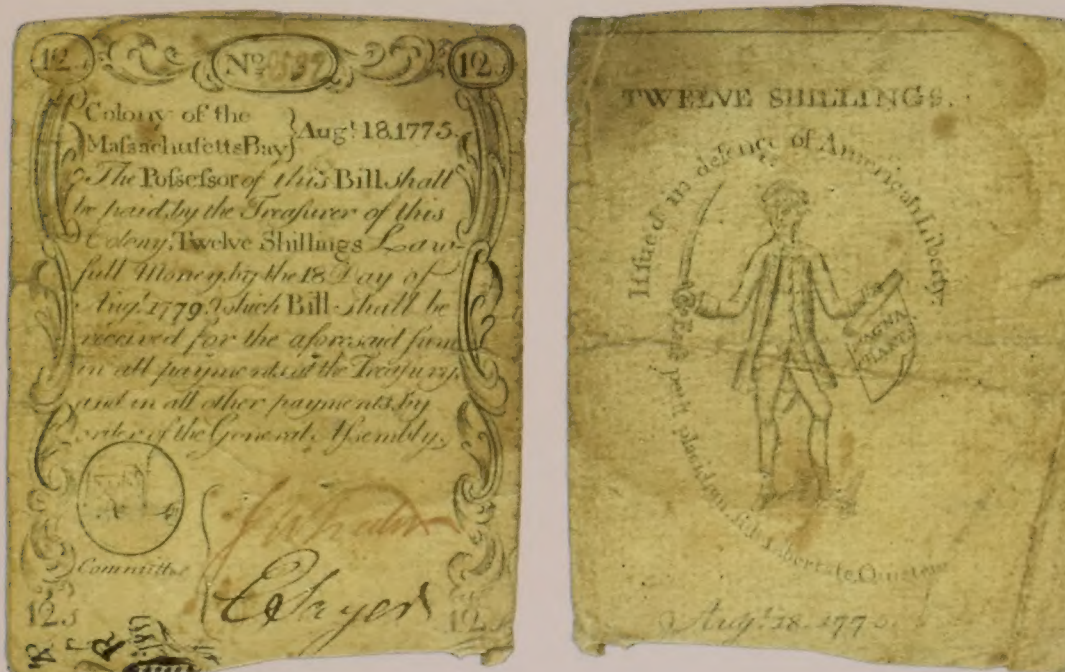 12s
No
12s
Colony of the
Maſsachuſetts Bay } Augt. 18.1775.
The Poſseſsor of this Bill shall
be paid, by the Treaſurer of this
Colony, Twelve Shillings Law-
full Money, by the 18 Day of
Augt. 1779. which Bill shall be
received for the aforesaid ſum
in all payments at the Treaſury,
and in all other payments by
order of the General Aſsembly.
Committee
12s
12s
TWELVE SHILLINGS.
Iſsued in defence of American Liberty.
Ense petit placidam, sub Libertate, Quietem
MAGNA
CHARTA
Augt. 18. 1775.